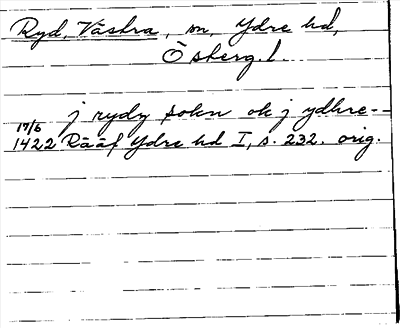 Ryd, Västra, sn, Ydre hd,
Österg.l.
j rydz sokn ok j ydhre--
17/6
1422 Rääf Ydre hd I, s. 232. orig.